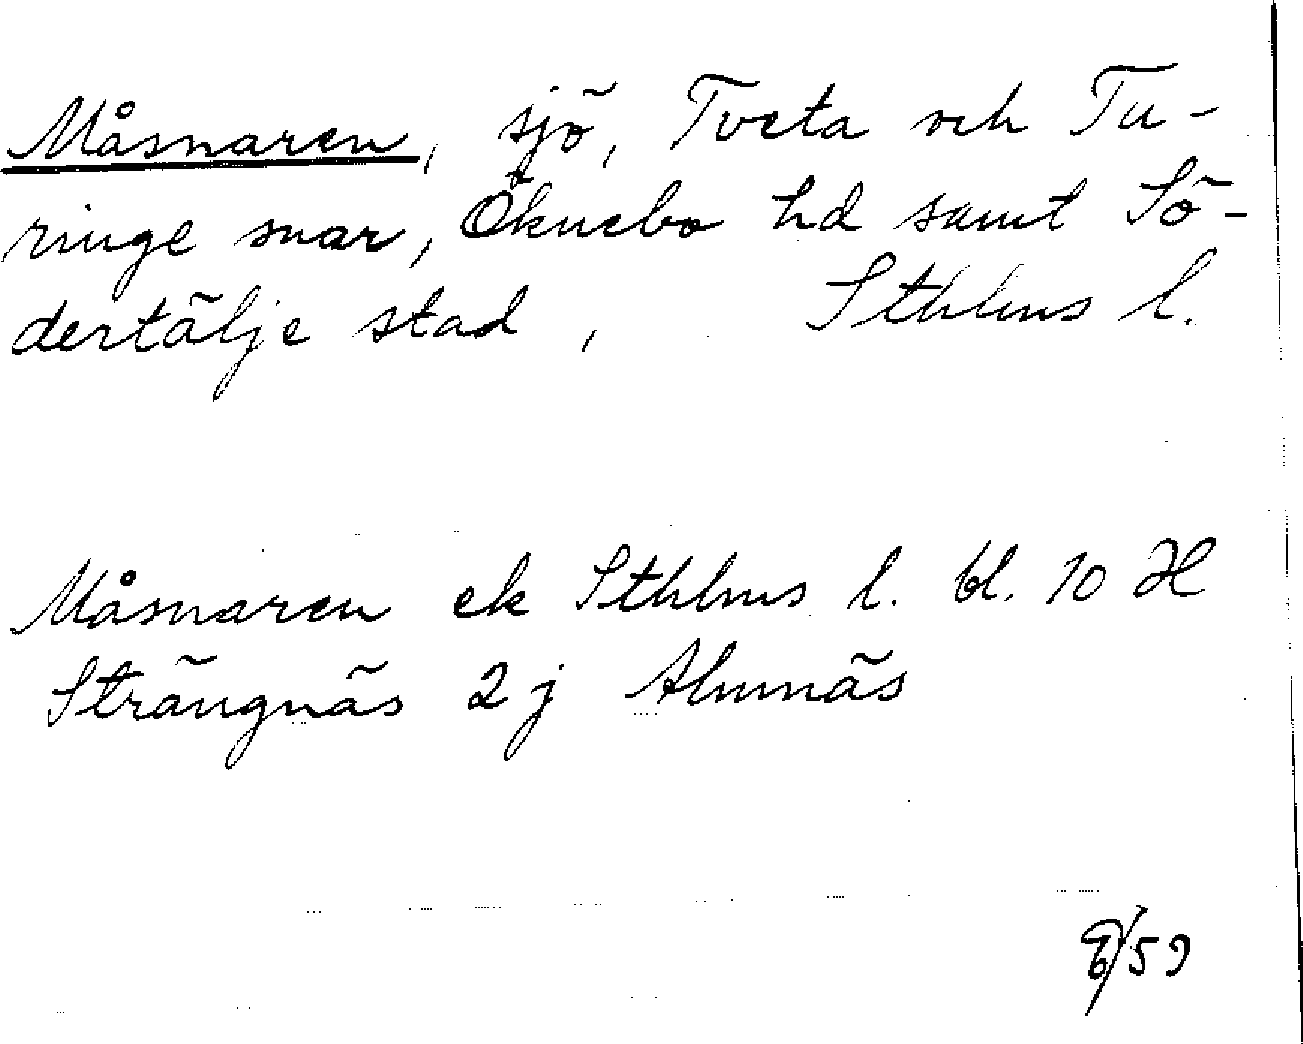 Måsnaren, sjö, Tveta och Tu-
ringe snar, Öknebo hd samt Sö-
dertälje stad, Sthlms l.
Måsnaren ek Sthlms l. bl. 10 H
Strängnäs 2 j Almnäs
59